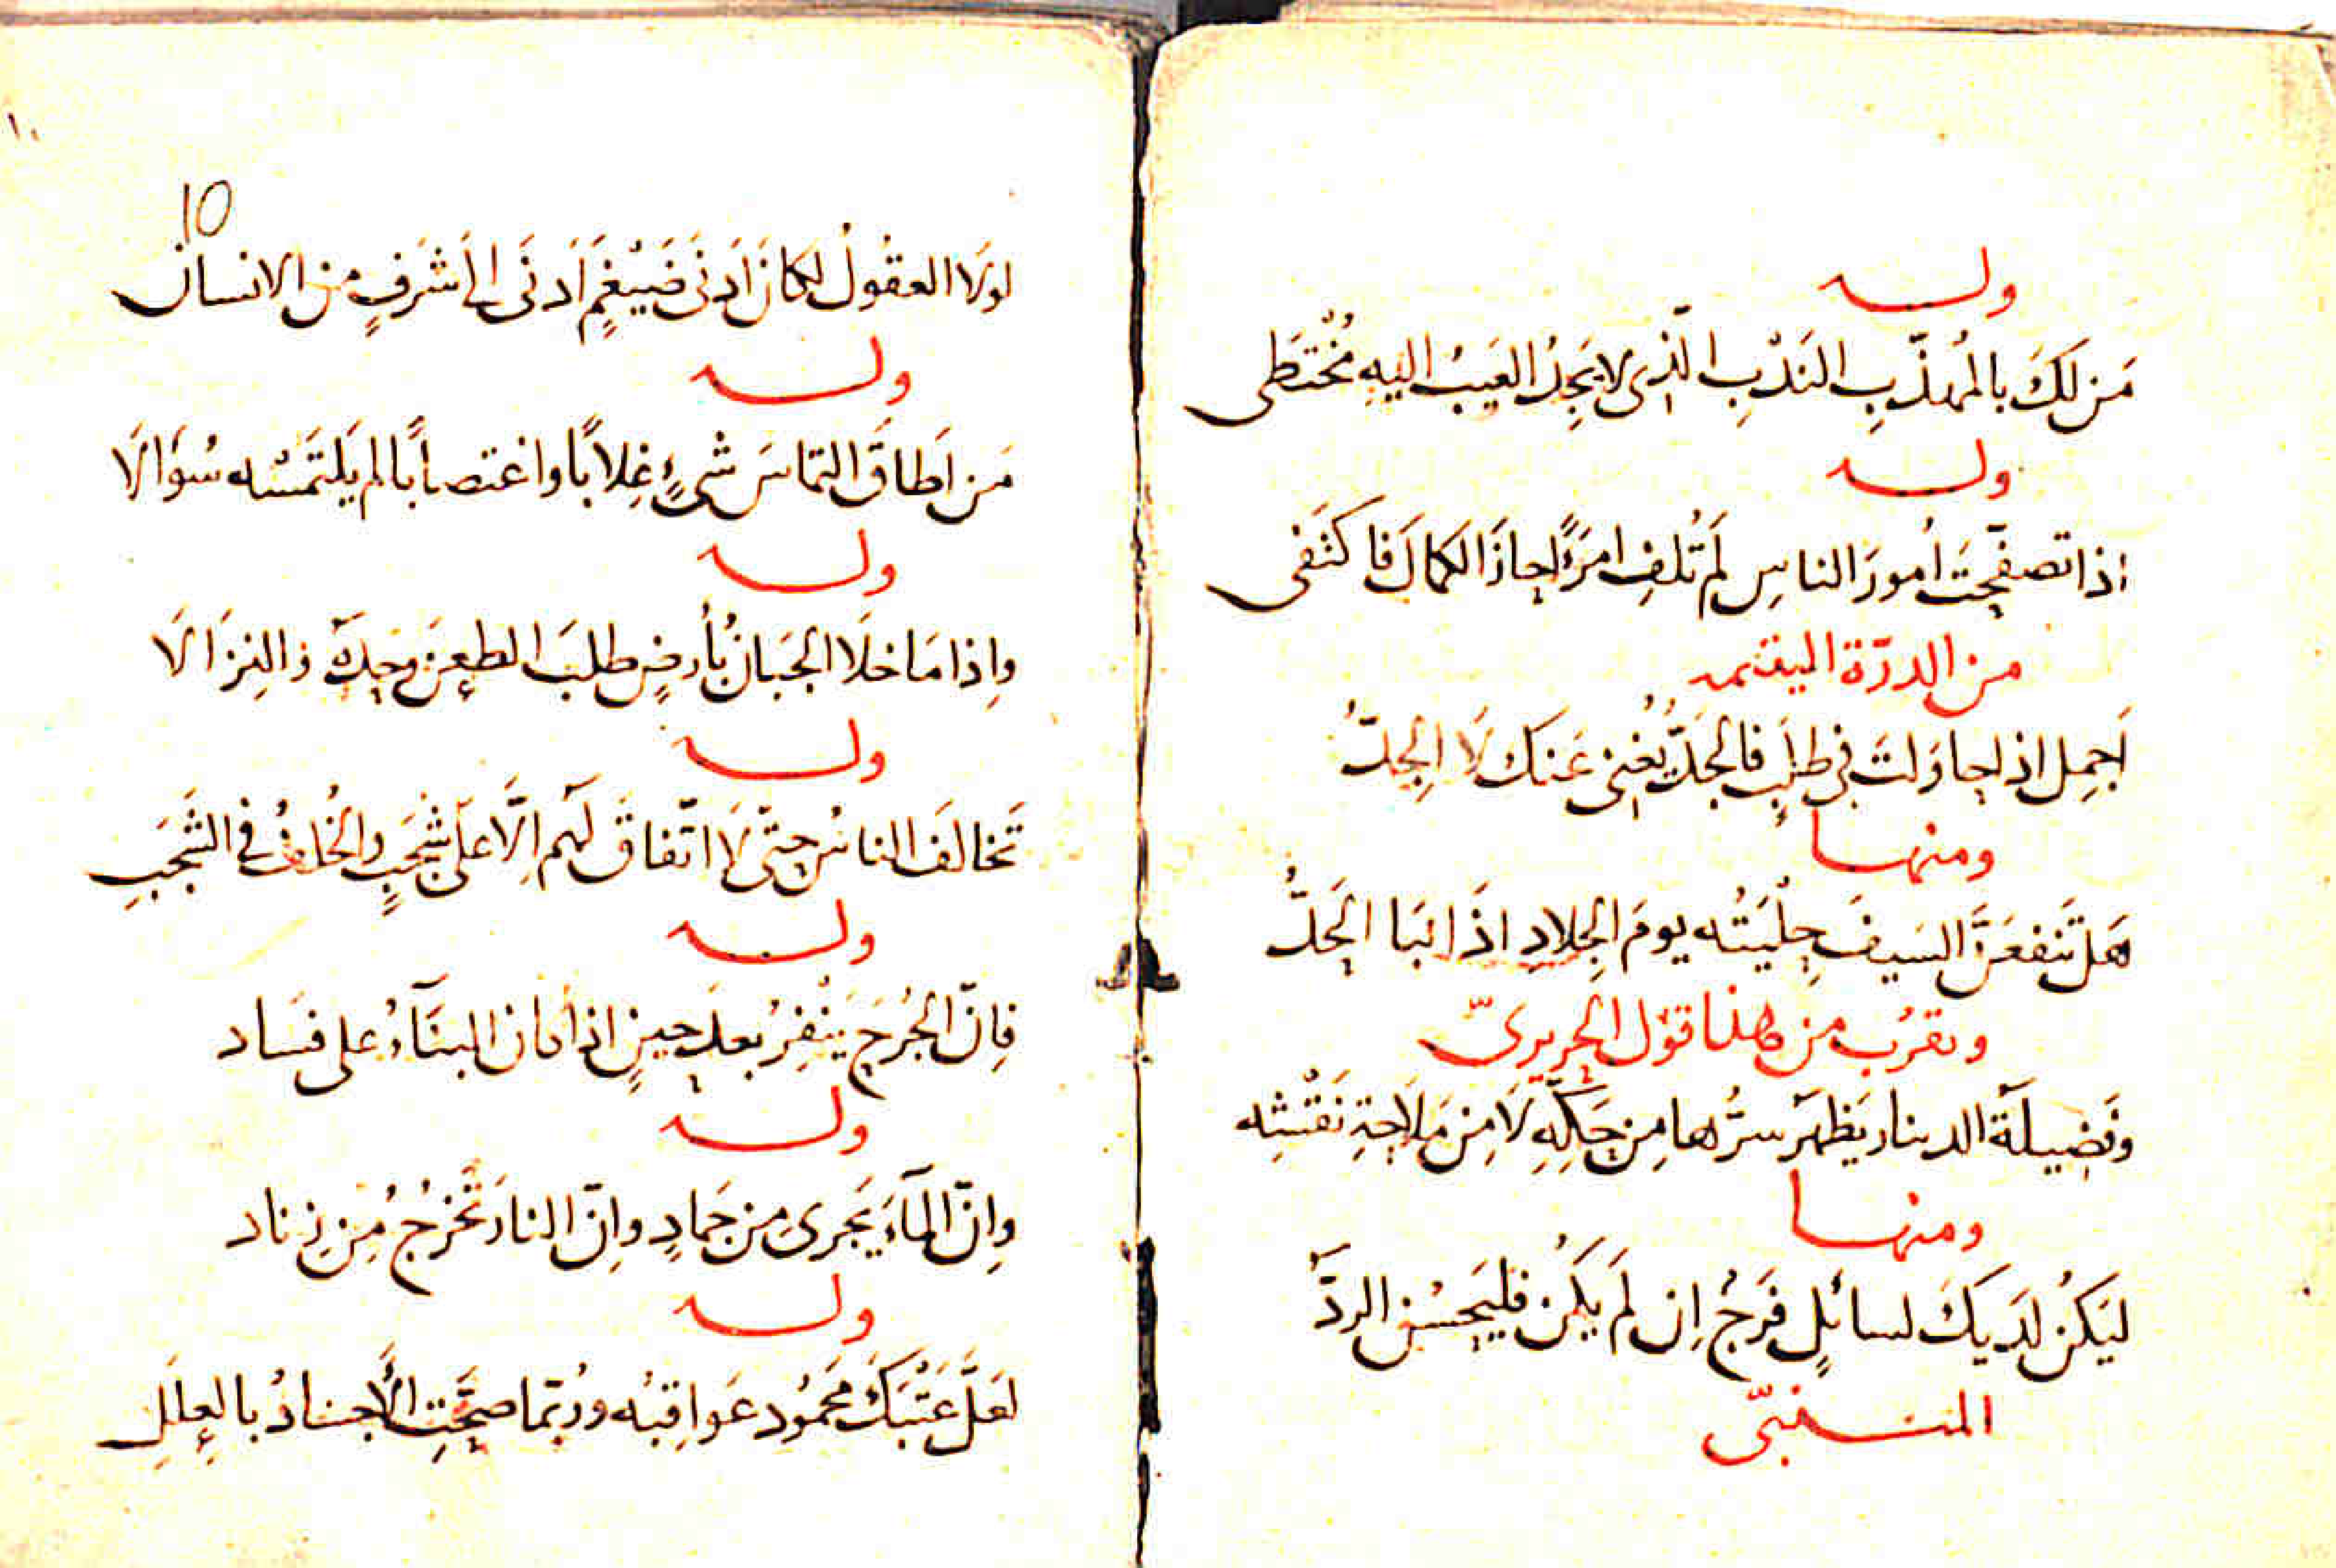 وله
مَن لَكَ بالمُهذّبِ النَدْبِ الّذى لا يَجِدُ العَيبُ اليهِ مُخْتَطَى
وله
اذا تصفّحتَ أمورَ الناسِ لَم تُلفِ امرَءًا حازَ الكمالَ فاكتَفى
من الدرّة اليتيمه
اَجمِل اذا حاوَلتَ فى طلَبٍ فالجَدُّ يُغنى عَنكَ لَا الجِدُّ
ومنها
هَل تَنفعَنَّ السَيفَ حِلْيَتُه يومَ الجِلادِ اذَا نَبا الحَدُّ
ويقرُب من هذا قول الحريرىّ
وفَضِيلَة الدينار يَظهَر سرُّها مِن حَكِّهِ لَا مِن مَلاحَةِ نَقْشِه
ومنها
ليَكُن لَدَيكَ لسائلٍ فَرَجُ اِن لَم يَكُن فليَحسُنِ الردُّ
المتنبّى
١٠
10
لولَا العقُولُ لكانَ اَدنَى ضَيْغمٍ اَدنَى الى شَرَفٍ من الانسان
وله
مَن اَطاقَ التماسَ شىءٍ غِلابًا واغتصابًا لم يَلتَمسْه سُوَالَا
وله
واِذا مَا خلَا الجَبَانُ بأرضٍ طلبَ الطعنَ وحدَهُ والنِزَالَا
وله
تَخالَفَ الناسُ حتّى لَا اتّفاقَ لَهم اِلَّا عَلَى شَجَبٍ والخُلفُ فى الشَجَبِ
وله
فاِنّ الجُرحَ يَنْفِرُ بعدَ حينٍ اذا كان البنَآءُ على فسَاد
وله
واِنّ المآءَ يَجرى مِن جَمادٍ واِنّ النارَ تَخرُجُ مِن زِناد
وله
لعَلَّ عَتْبَكَ مَحمُود عَواقِبُه ورُبّما صحَّتِ الأجسادُ بالعِلَلِ